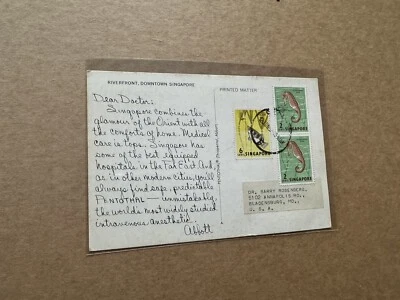 RIVERFRONT, DOWNTOWN SINGAPORE
Dear Doctor:
Singapore combines the
glamour of the Orient with all
the comforts of home. Medical
care is tops. Singapore has
some of the best equipped
hospitals in the Far East. And,
as in other modern cities, you'll
always find safe, predictable
PENTOTHAL — unmistakably,
the world's most widely studied
intravenous anesthetic.
Abbott
PRINTED MATTER
SINGAPORE
SINGAPORE
SINGAPORE
DR. HARRY
5100 ANNAPOLIS RD.,
BLADENSBURG, MD.,
U. S. A.